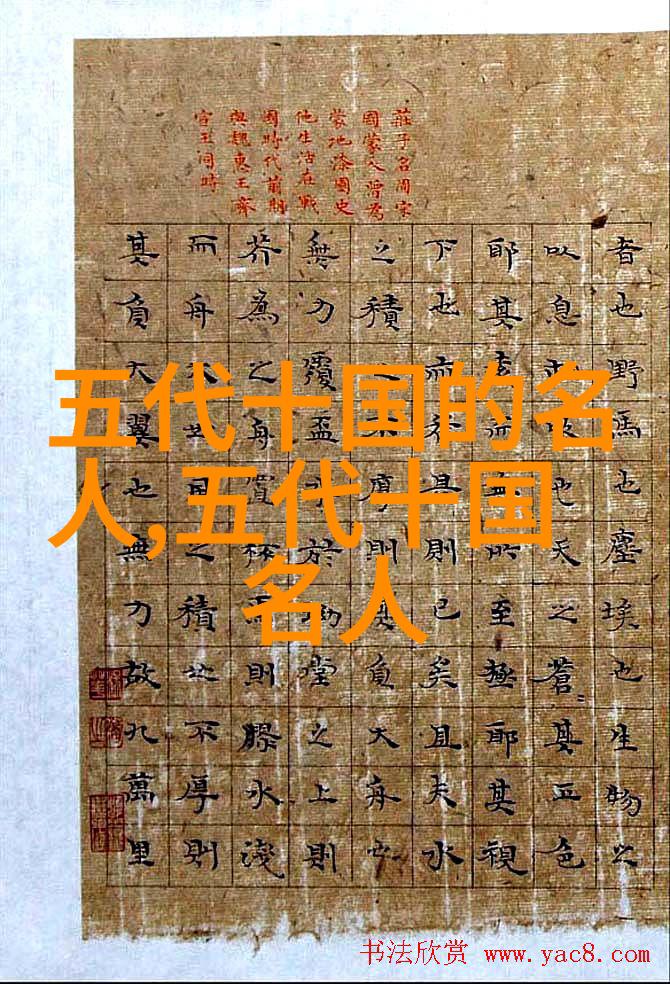 莊子名周宋
國蒙人曾為
蒙地漆園史
他生活在戰
國時代前期
與魏惠王齊
宣王同時
者也野馬也塵埃也生物之
以息相吹也天之蒼其正色
耶其遠而無所至極耶其視
下也而若是則已矣且夫水
之積也不厚則其負大舟也
無力覆盃水於坳堂之上則
芥為之舟置杯焉則膠水淺
而舟大也風之積也不厚則
其負大翼也無力故九萬里
五代十国的名
人,五代十国
名人
书法欣赏 www.yac8.com